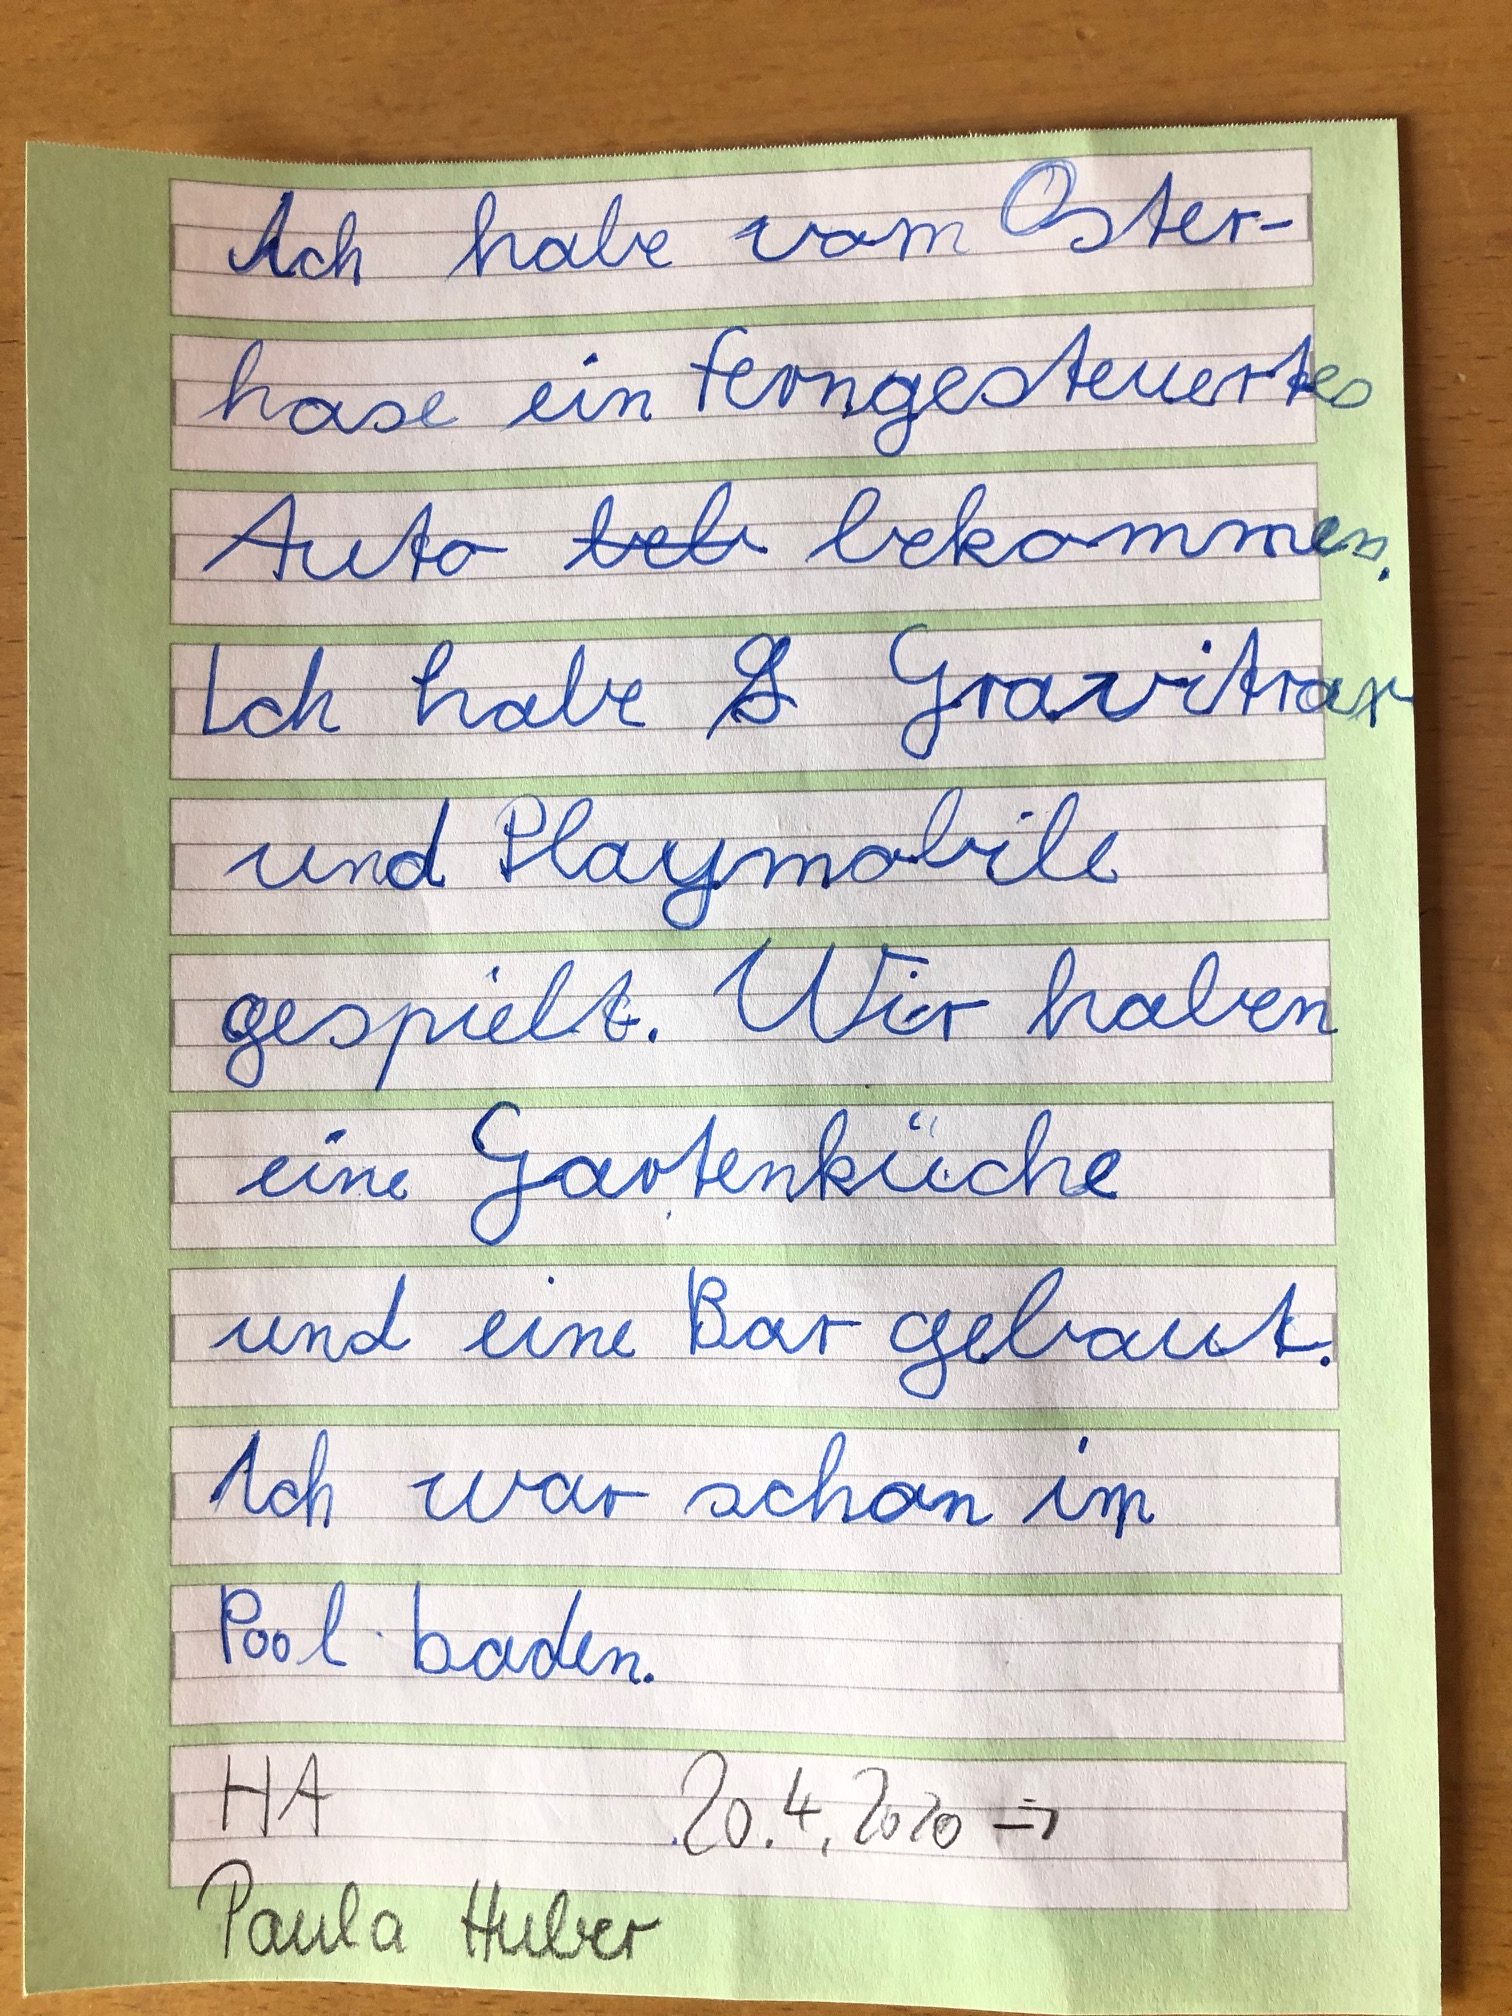 Ich habe vom Oster-
hase ein ferngesteuertes
Auto beb bekommen.
Ich habe G Gravitrax
und Playmobile
gespielt. Wir haben
eine Gartenküche
und eine Bar gebaut.
Ich war schon im
Pool baden.
HA 20.4.2020 →
Paula Huber